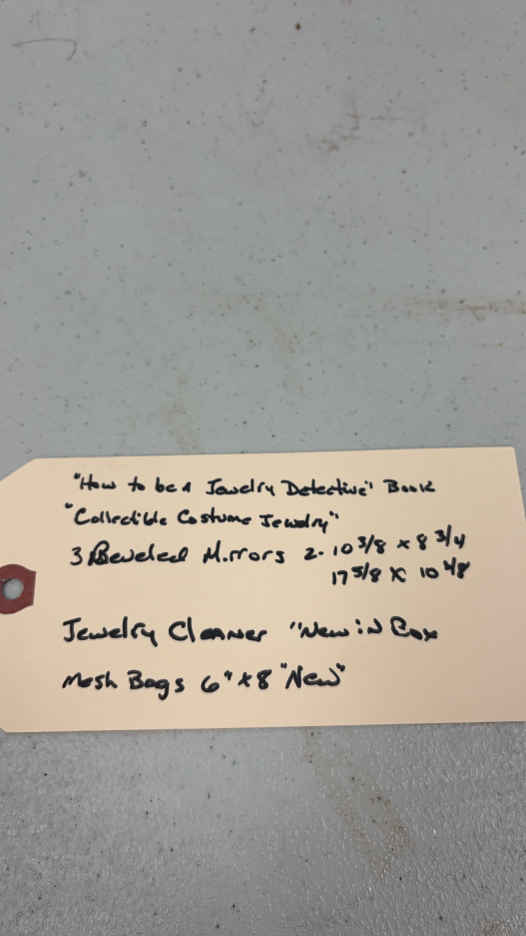 "How to be a Jewelry Detective" Book
"Collectible Costume Jewelry"
3 Beveled Mirrors 2- 10 3/8 x 8 3/4
17 5/8 X 10 1/8
Jewelry Cleaner "New in Box
Mesh Bags 6" x 8 "New"